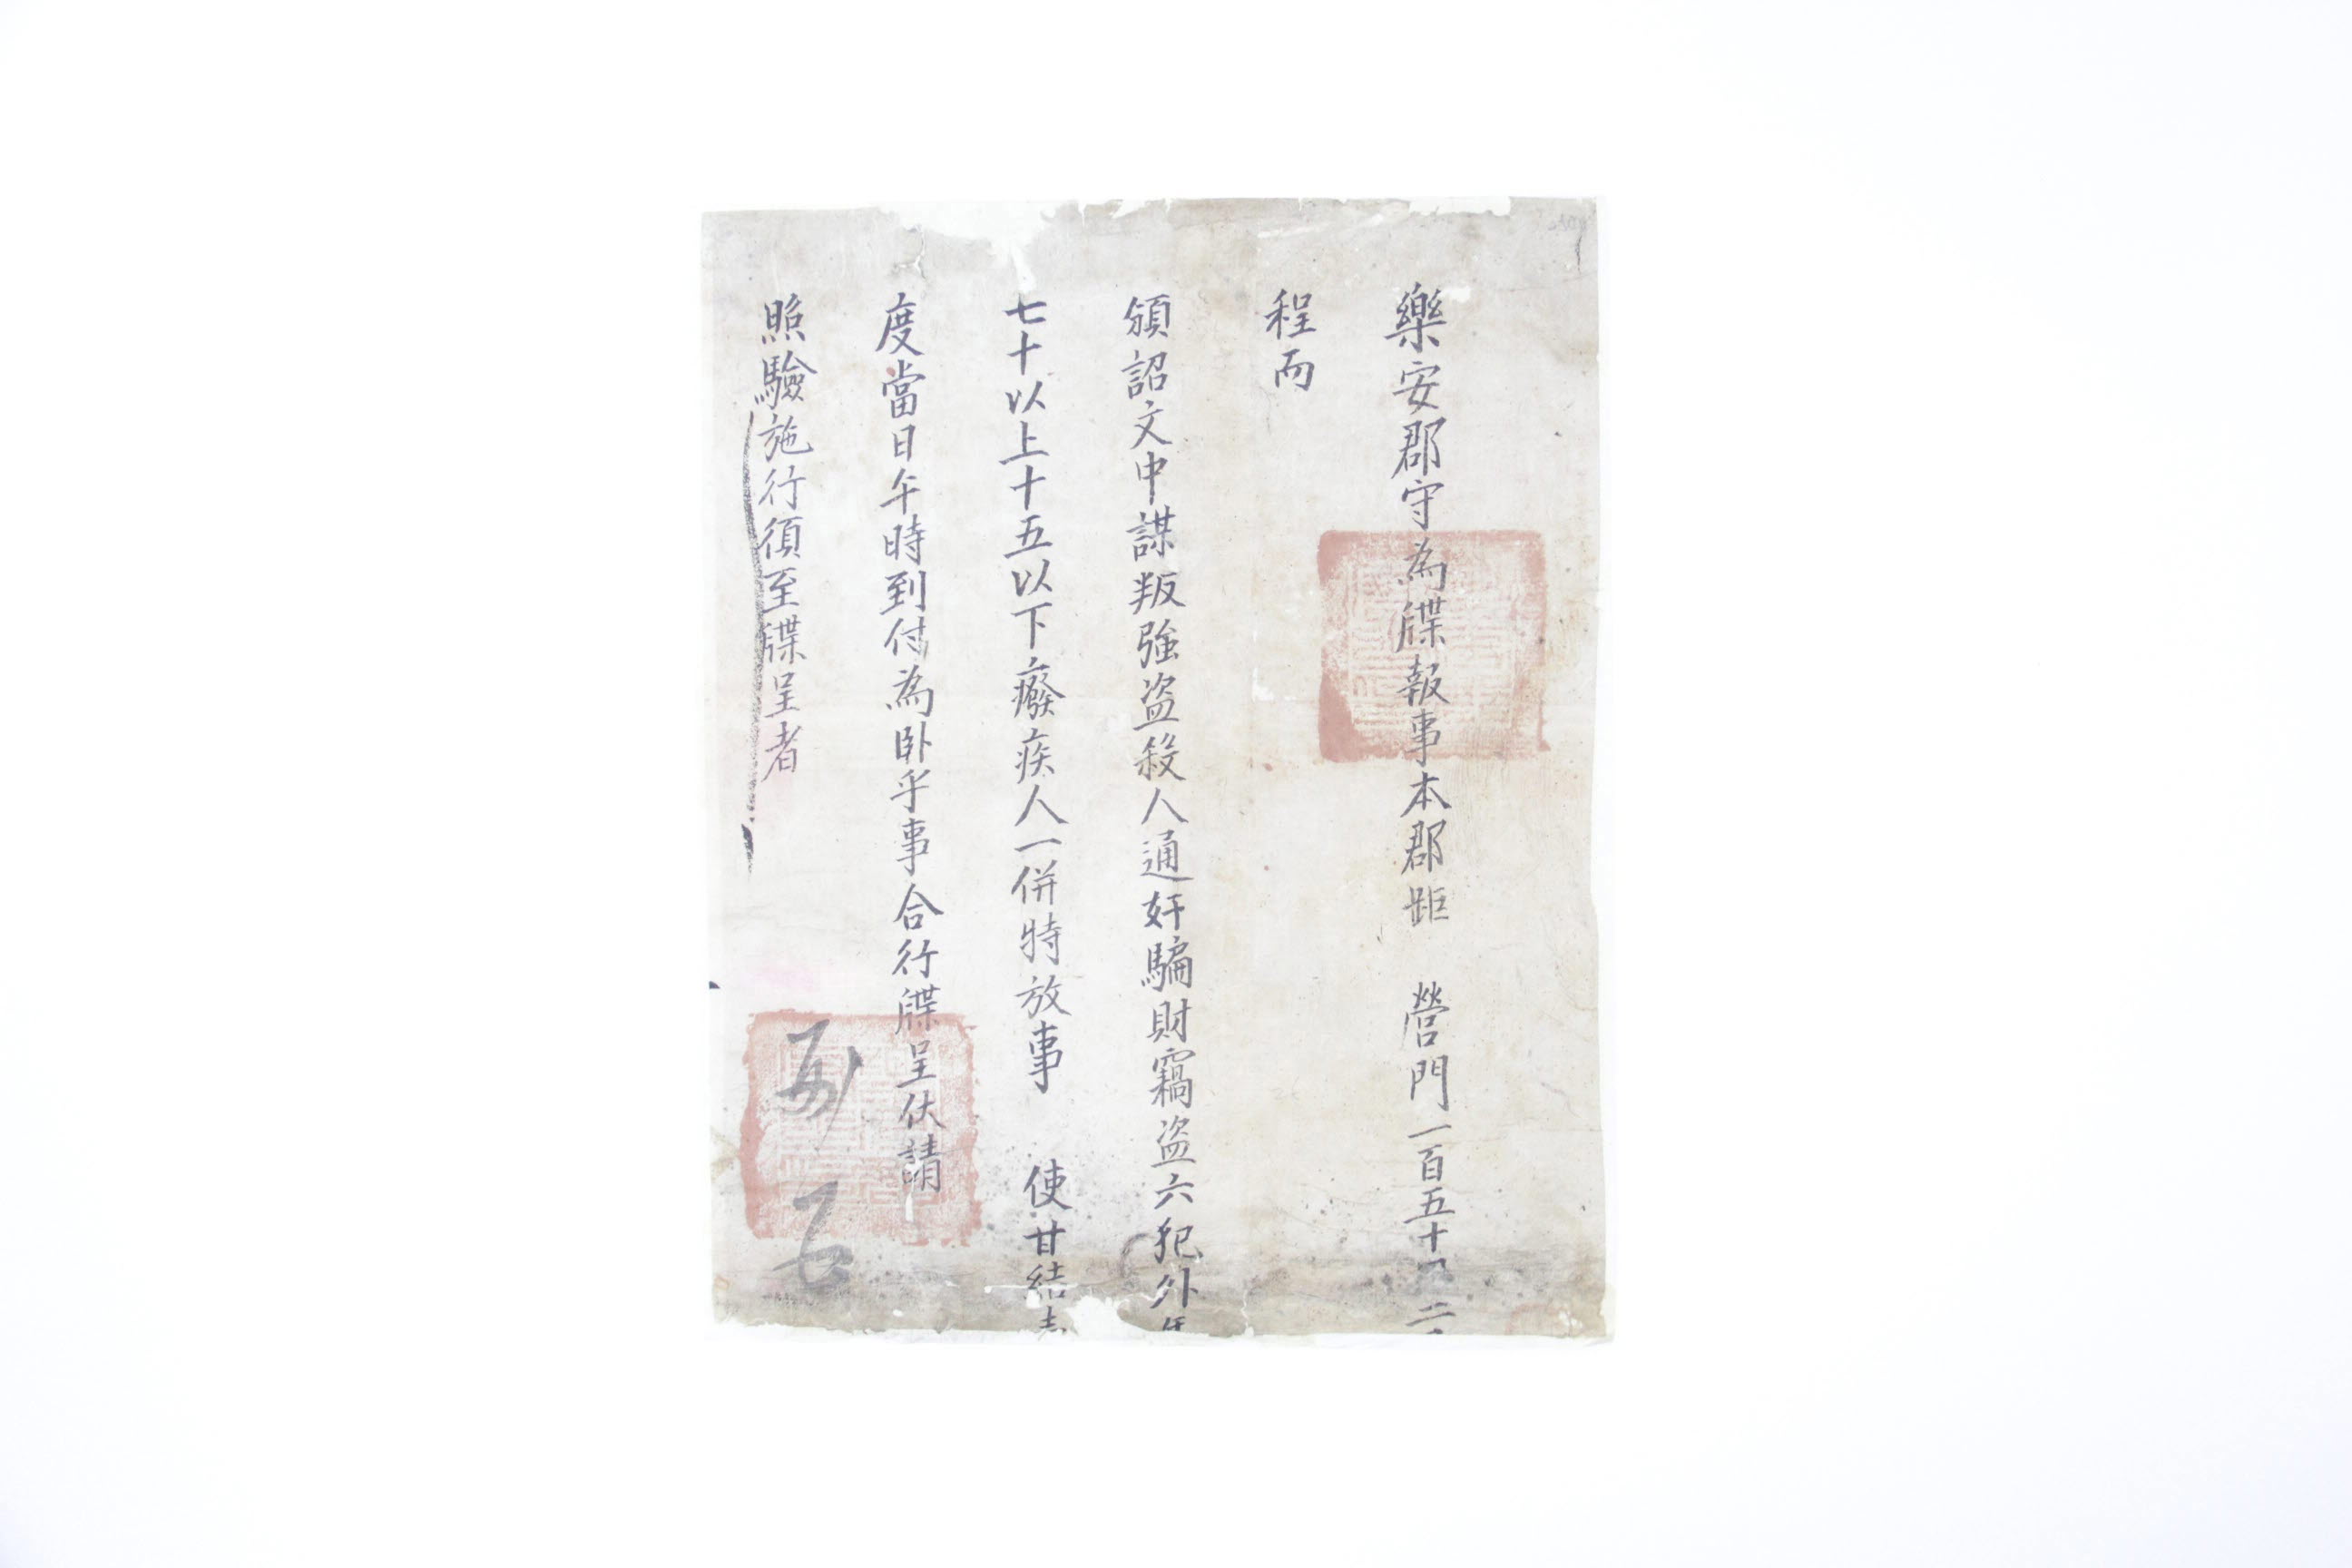 樂安郡守爲牒報事本郡距 營門一百五十里二
程而
頒詔文中謀叛強盗殺人通奸騙財竊盗六犯外
七十以上十五以下癈疾人一併特放事 使甘結
度當日午時到付為卧乎事合行牒呈伏請
照驗施行須至牒呈者